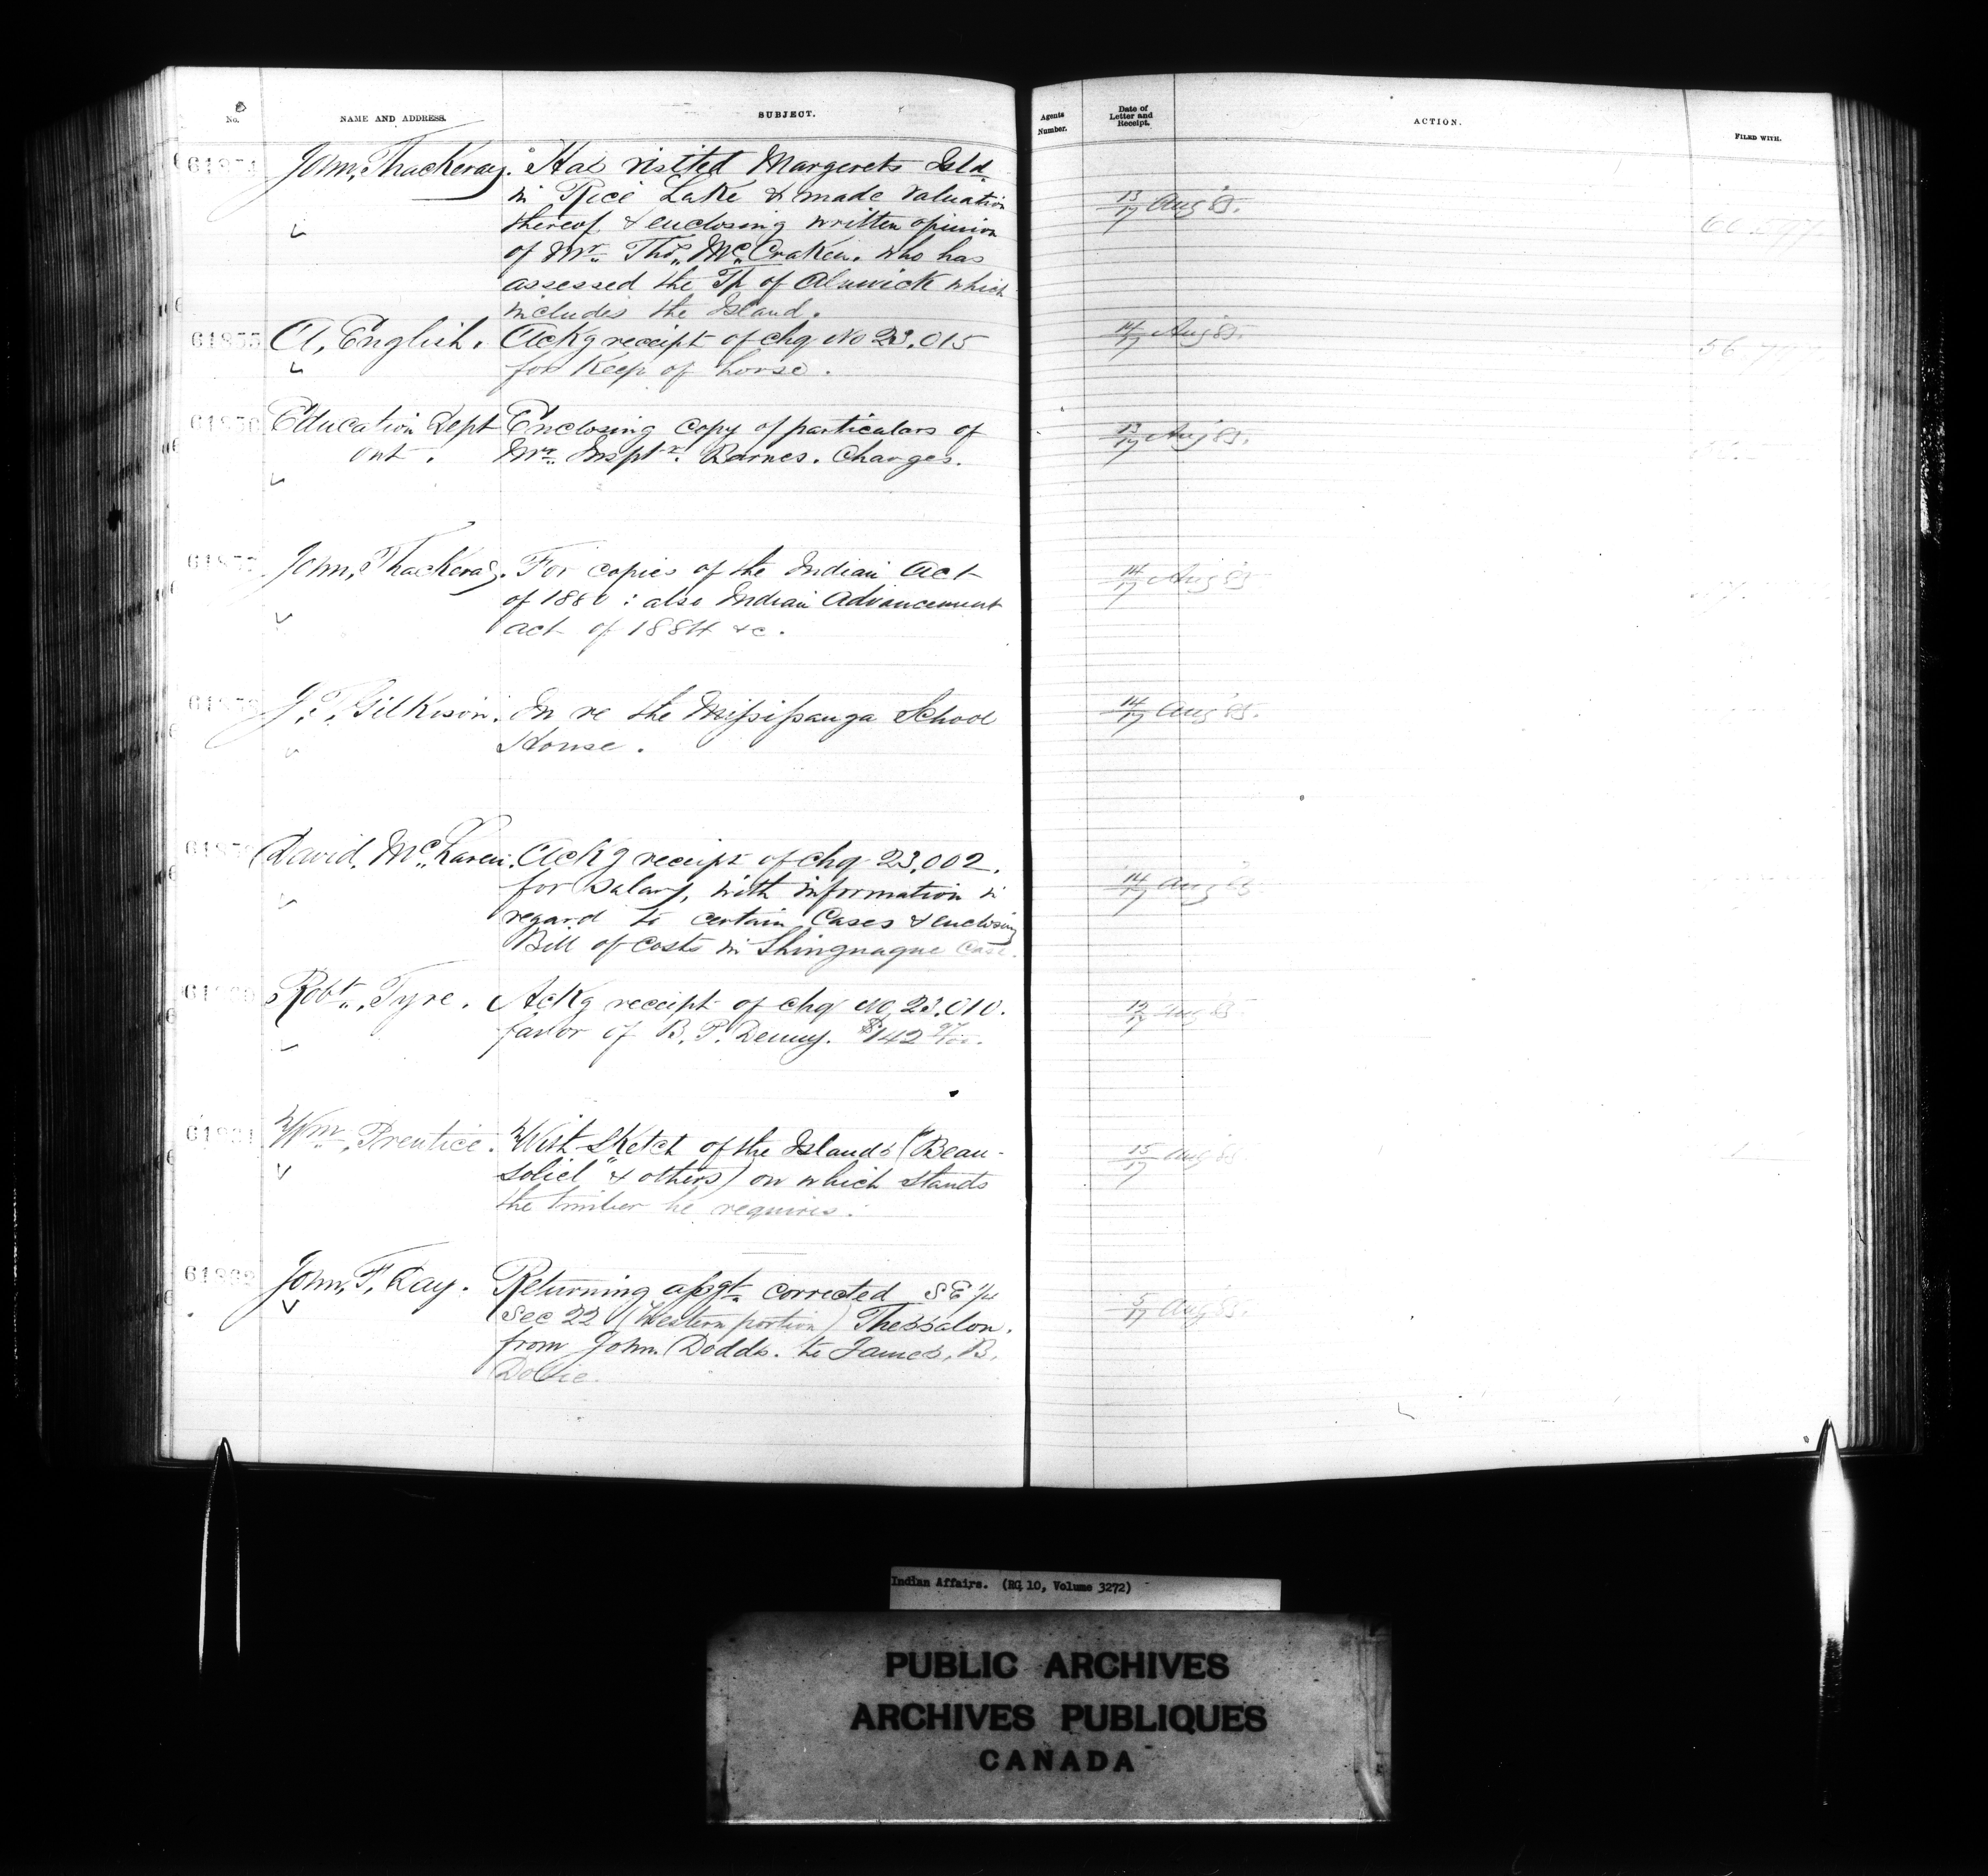 No.
NAME AND ADDRESS.
SUBJECT.
Agents Number.
Date of Letter and Receipt.
ACTION.
FILED WITH.
John, Thackeray. Has visited Margerets Isld.
in Rice Lake & made valuation
thereof, & enclosing written opinion
of Mr. Thos. McCraken. who has
assessed the Tp of Alnwick which
includes the Island.
13/17 Aug 85.
61855 A, English. Ackg receipt of chq No 23.015
for Keep of horse.
14/17 Aug 85.
61856 Education Dept Enclosing copy of particulars of
Ont. Mr. Insptr. Barnes. Charges.
13/17 Aug 85.
John, Thackeray. For copies of the Indian Act
of 1880 : also Indian Advancement
act of 1884 &c.
14/17 Aug 85
J. T. Gilkison. In re the Missisauga School
House.
14/17 Aug 85.
David, McLaren. Ackg receipt of chq 23.002.
for salary, with information in
regard to certain Cases & enclosing
Bill of costs in Shinguaque Case.
14/17 Aug 85
Robt. Tyre. Ackg receipt of chq No. 23.010.
favor of B. P. Denny. $142
Aug 85
Wm. Prentice. With Sketch of the Islands ("Beau-
soliel" & others) on which stands
the timber he requires.
15/17 Aug 85
John, F, Day. Returning assgt. corrected SE 1/4
Sec 22 (Western portion) Thessalon.
from John. Dodds. to James, B,
Dobie.
5/17 Aug 85.
Indian Affairs. (RG 10, Volume 3272)
PUBLIC ARCHIVES
ARCHIVES PUBLIQUES
CANADA